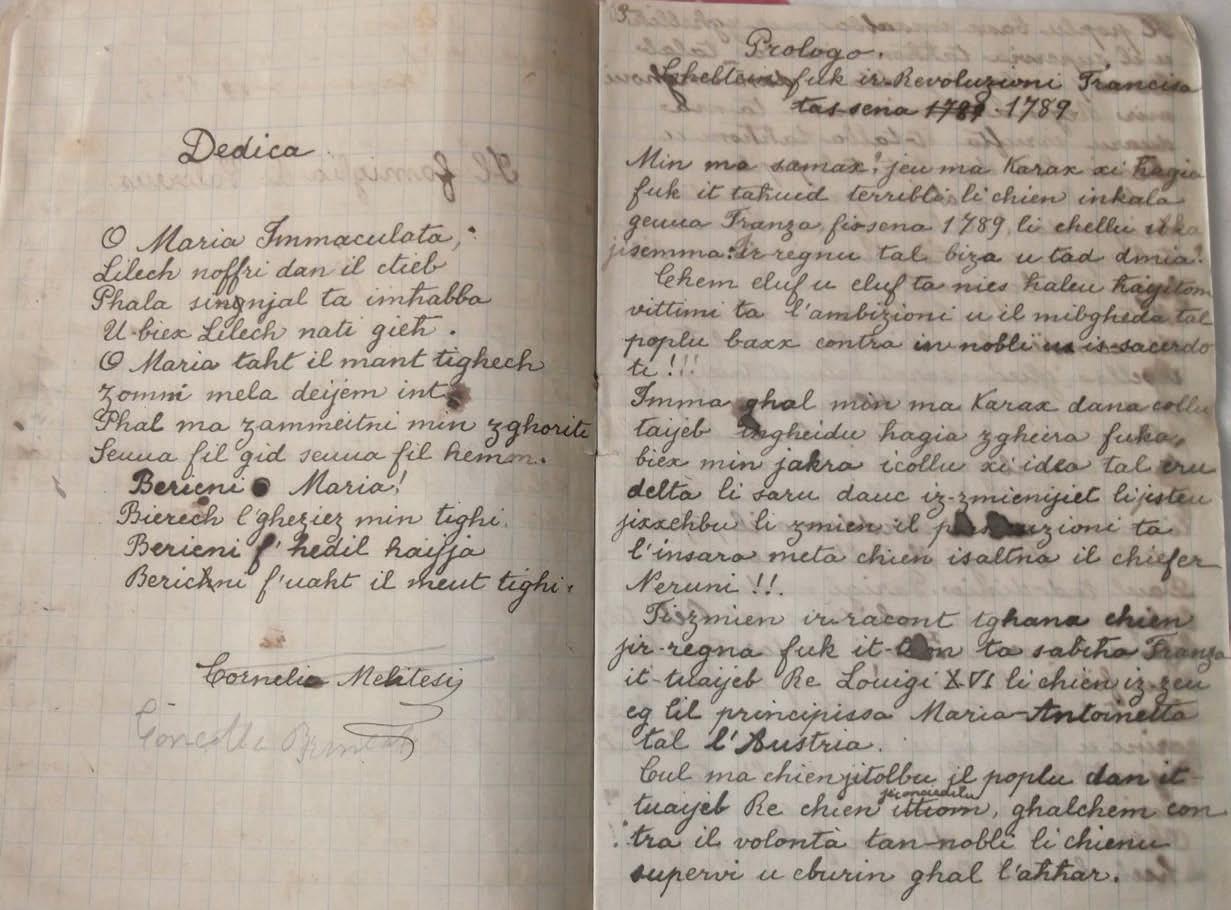 Dedica
O Maria Immaculata,
Lilech noffri dan il ctieb
Phala singnjal ta imhabba
U biex Lilech nati gieh.
O Maria taht il mant tighech
zommi mela deijem int
Phal ma zammeitni min zghoriti
Seuua fil gid seuua fil hemm.
Berieni O Maria!
Bierech l'gheziez min tighi.
Berieni f'hedil haijja
Berichni f'uaht il meut tighi.
Cornelia Melitesi
Prologo.
fuk ir-Revoluzioni Francisa
tas-sena 1789. 1789
Min ma samax, jeu ma Karax xi hagia
fuk it tahuid terribli li chien inkala
geuua Franza fis sena 1789, li chellu
jisemma: Ir-regnu tal biza u tad dmia.
Chem eluf u eluf ta nies haleu hayitom
vittimi ta l'ambizioni u il mibgheda tal
poplu baxx contra in nobli u is-sacerdo
ti!!!
Imma ghal min ma Karax dana collu
taijeb ingheidu hagia zgheira fuka,
biex min jakra icollu xi idea tal cru
deltà li saru dauc iz-zmienijiet li jisteu
jixxchbu li zmien il ta
l'insara meta chien isaltna il chiefer
Neruni!!.
Fizmien ir-racont tghana chien
jir-regna fuk it- ta sabiha Franza
it-tuaijeb Re Louigi XVI li chien iz-zeu
eg lil principissa Maria-Antoinetta
tal l'Austria.
Cul ma chien jitolbu il poplu dan it-
tuaijeb Re chien ittiom, ghalchem con
tra il volontà tan-nobli li chienu
supervi u cburin ghal l'ahhar.